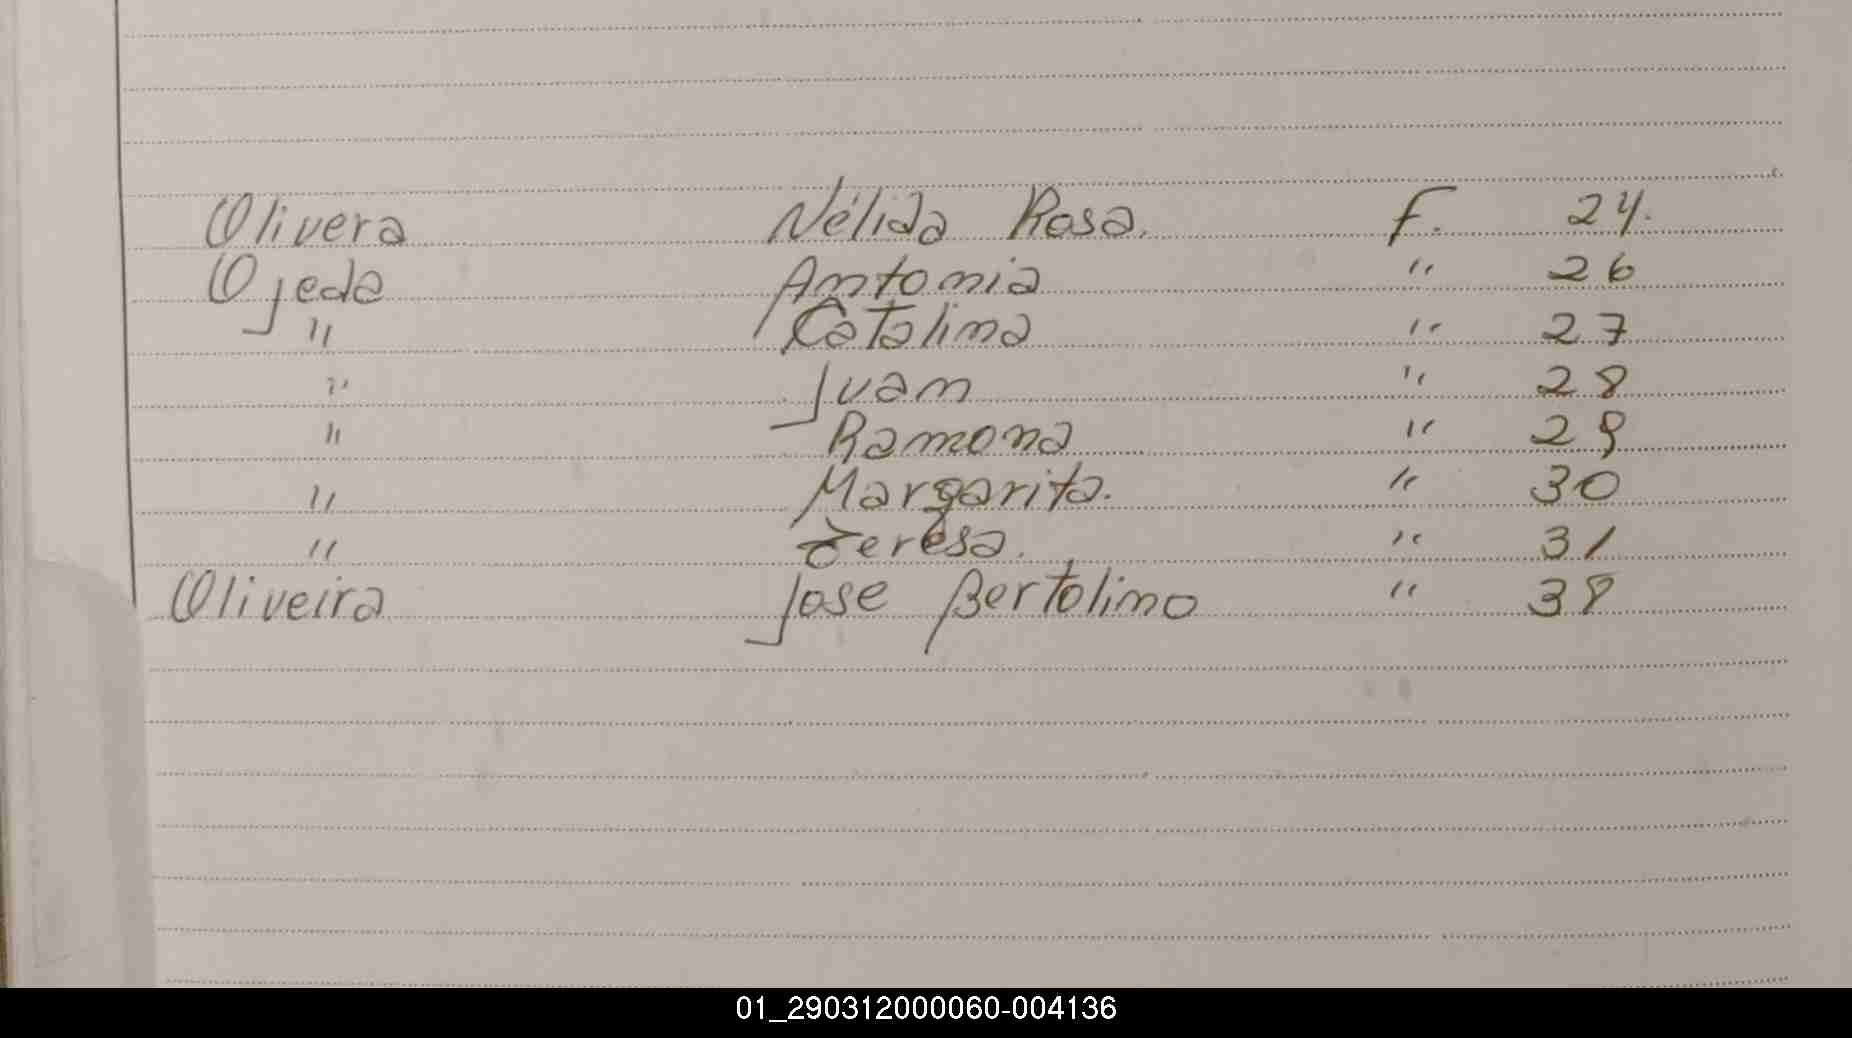 Olivera Nélida Rosa. F. 24.
Ojeda Antonia " 26
" Catalina " 27
" Juan " 28
" Ramona " 29
" Margarita. " 30
" Teresa. " 31
Oliveira Jose Bertolino " 38
01_290312000060-004136